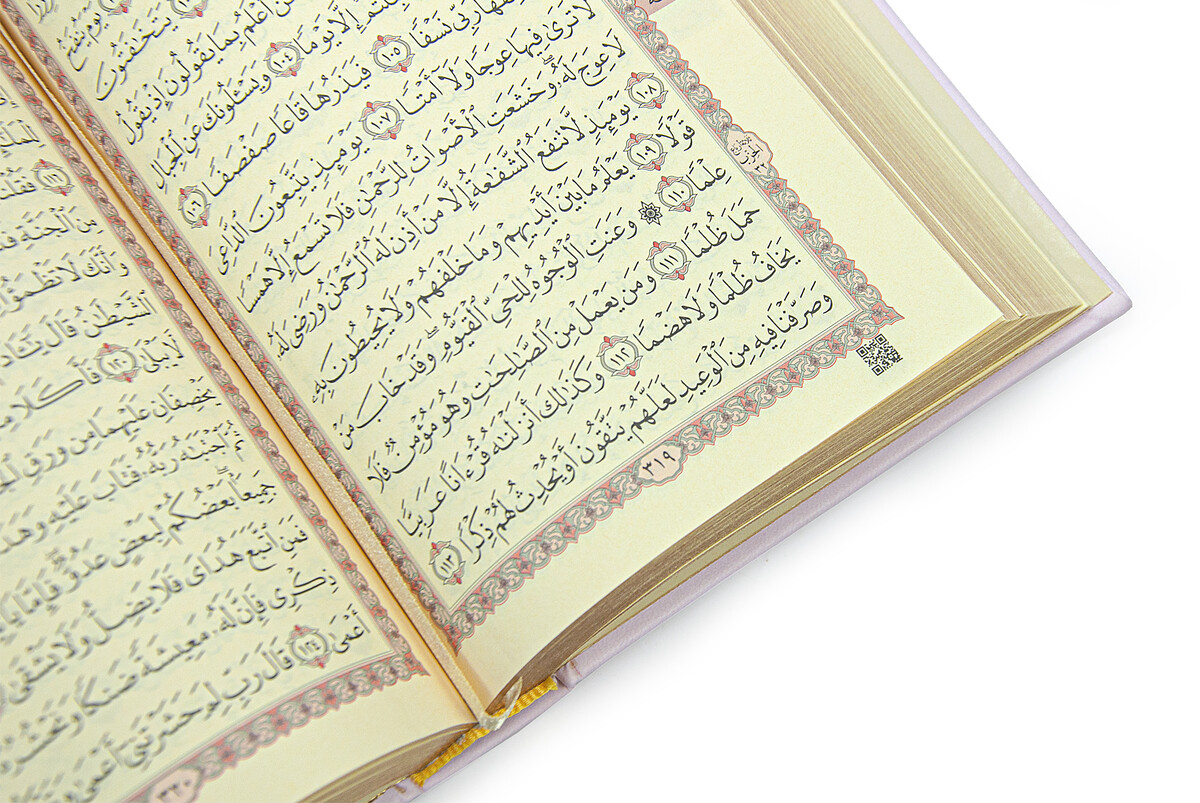 يَوْمَ يُنفَخُ
يَتَخَٰفَتُونَ
أَعْلَمُ بِمَا يَقُولُونَ إِذْ يَقُولُ
إِلَّا يَوْمًا ١٠٤ وَيَسْـَٔلُونَكَ عَنِ ٱلْجِبَالِ
رَبِّى نَسْفًا ١٠٥ فَيَذَرُهَا قَاعًا صَفْصَفًا ١٠٦
لَّا تَرَىٰ فِيهَا عِوَجًا وَلَآ أَمْتًا ١٠٧ يَوْمَئِذٍ يَتَّبِعُونَ ٱلدَّاعِىَ
لَا عِوَجَ لَهُۥ وَخَشَعَتِ ٱلْأَصْوَاتُ لِلرَّحْمَٰنِ فَلَا تَسْمَعُ إِلَّا هَمْسًا
١٠٨ يَوْمَئِذٍ لَّا تَنفَعُ ٱلشَّفَٰعَةُ إِلَّا مَنْ أَذِنَ لَهُ ٱلرَّحْمَٰنُ وَرَضِىَ لَهُۥ
قَوْلًا ١٠٩ يَعْلَمُ مَا بَيْنَ أَيْدِيهِمْ وَمَا خَلْفَهُمْ وَلَا يُحِيطُونَ بِهِۦ
عِلْمًا ١١٠ ۞ وَعَنَتِ ٱلْوُجُوهُ لِلْحَىِّ ٱلْقَيُّومِ ۖ وَقَدْ خَابَ مَنْ
حَمَلَ ظُلْمًا ١١١ وَمَن يَعْمَلْ مِنَ ٱلصَّٰلِحَٰتِ وَهُوَ مُؤْمِنٌ فَلَا
يَخَافُ ظُلْمًا وَلَا هَضْمًا ١١٢ وَكَذَٰلِكَ أَنزَلْنَٰهُ قُرْءَانًا عَرَبِيًّا
وَصَرَّفْنَا فِيهِ مِنَ ٱلْوَعِيدِ لَعَلَّهُمْ يَتَّقُونَ أَوْ يُحْدِثُ لَهُمْ ذِكْرًا ١١٣
٣١٩
١١٦ فَقُلْنَا
مِنَ ٱلْجَنَّةِ
وَأَنَّكَ لَا تَظْمَؤُا۟
ٱلشَّيْطَٰنُ قَالَ
لَّا يَبْلَىٰ ١٢٠ فَأَكَلَا
يَخْصِفَانِ عَلَيْهِمَا مِن وَرَقِ
ثُمَّ ٱجْتَبَٰهُ رَبُّهُۥ فَتَابَ عَلَيْهِ وَهَدَىٰ
جَمِيعًۢا ۖ بَعْضُكُمْ لِبَعْضٍ عَدُوٌّ ۖ فَإِمَّا
فَمَنِ ٱتَّبَعَ هُدَاىَ فَلَا يَضِلُّ وَلَا يَشْقَىٰ
ذِكْرِى فَإِنَّ لَهُۥ مَعِيشَةً ضَنكًا وَنَحْشُرُهُۥ
أَعْمَىٰ ١٢٤ قَالَ رَبِّ لِمَ حَشَرْتَنِىٓ أَعْمَىٰ
٣٢٠